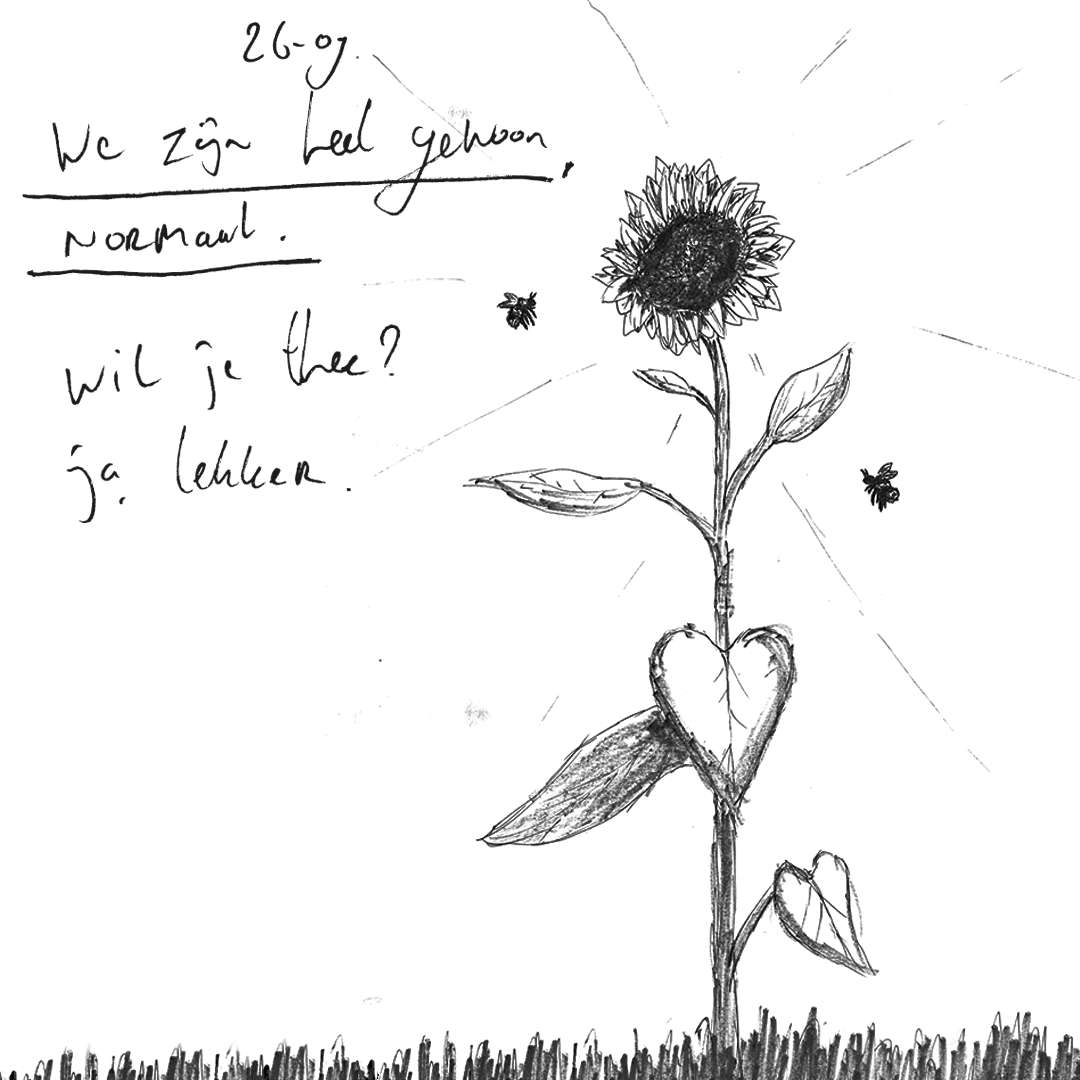 26-07.
We zijn heel gewoon,
NORMaal.
wil je thee?
ja, lekker.